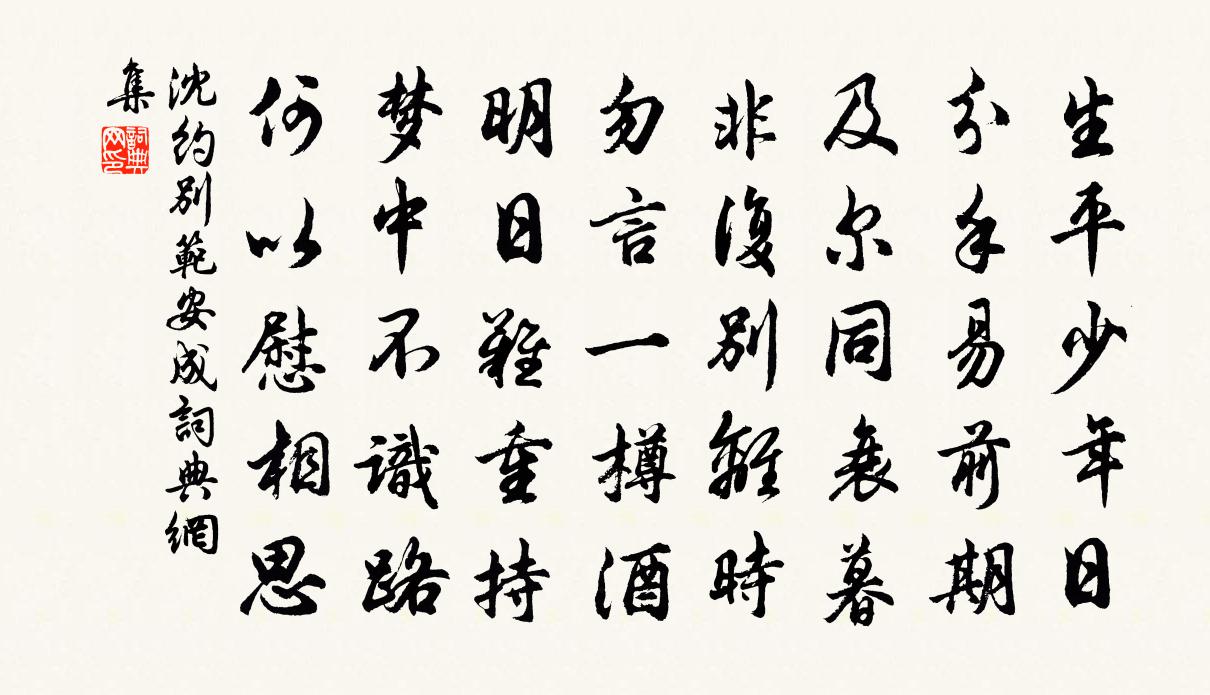 生平少年日
分手易前期
及尔同衰暮
非復別離時
勿言一樽酒
明日難重持
梦中不識路
何以慰相思
沈约別範安成詞典網
集
詞典网印